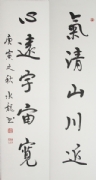 氣清山川近
心遠宇宙寬
庚寅之秋